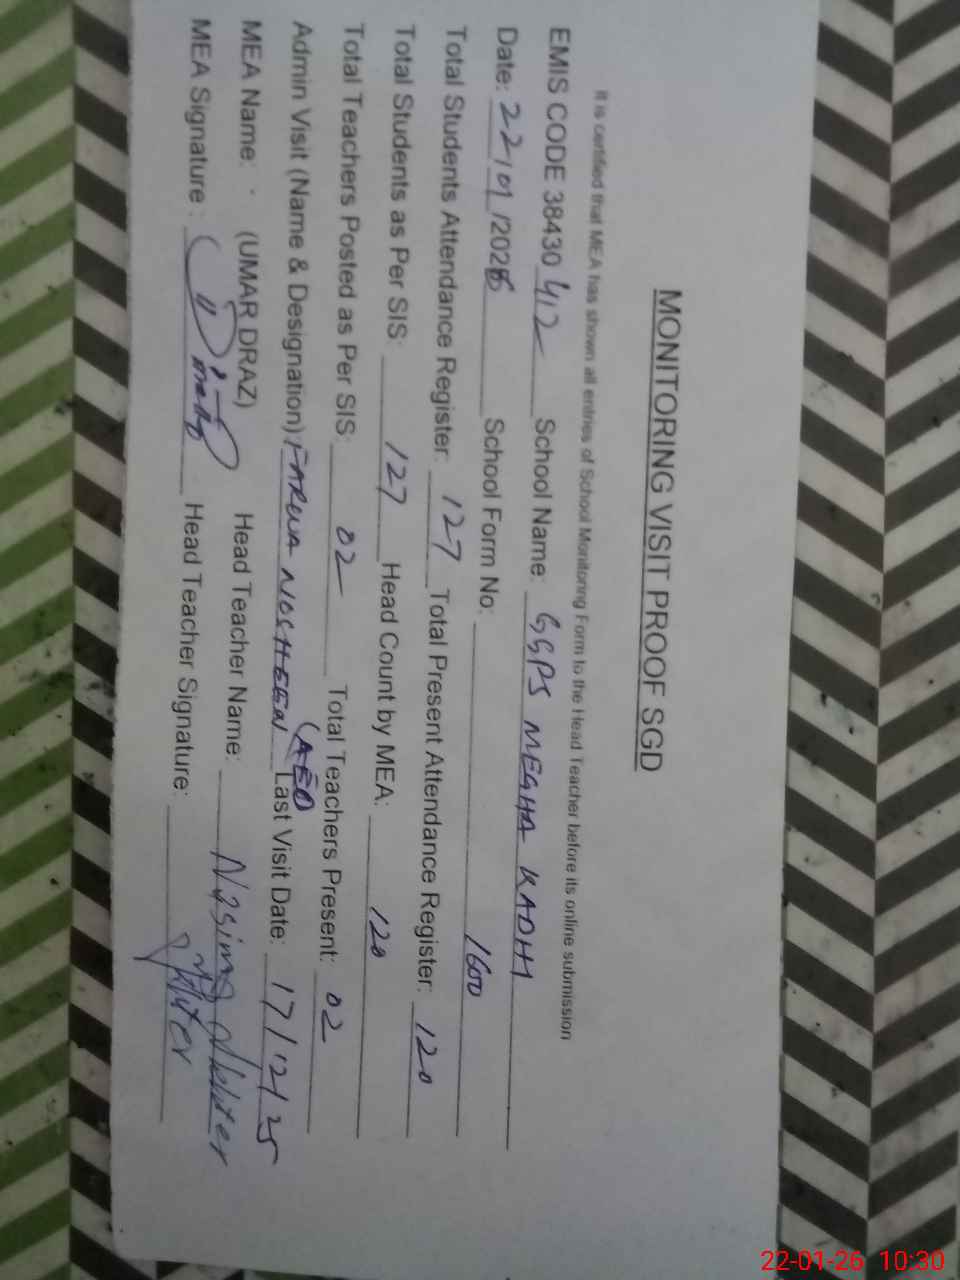 MONITORING VISIT PROOF SGD
It is certified that MEA has shown all entries of School Monitoring Form to the Head Teacher before its online submission
EMIS CODE 38430 412 School Name: GGPS MEGHA KADHI
Date: 22/01/2026 School Form No: 1600
Total Students Attendance Register: 127 Total Present Attendance Register: 120
Total Students as Per SIS: 127 Head Count by MEA: 120
Total Teachers Posted as Per SIS: 02 Total Teachers Present: 02
Admin Visit (Name & Designation): FARWA NOSHEEN (AEO) Last Visit Date: 17/12/25
MEA Name: (UMAR DRAZ) Head Teacher Name: Nasim Akhter
MEA Signature: Head Teacher Signature: Akhter
22-01-26 10:30